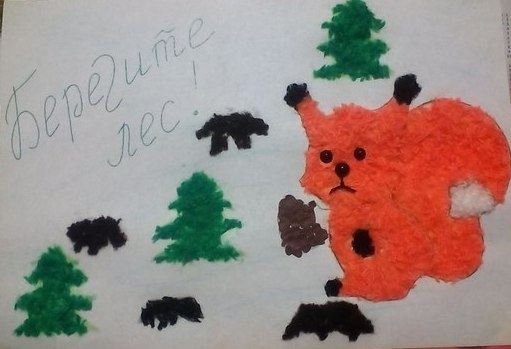 Берегите
лес!